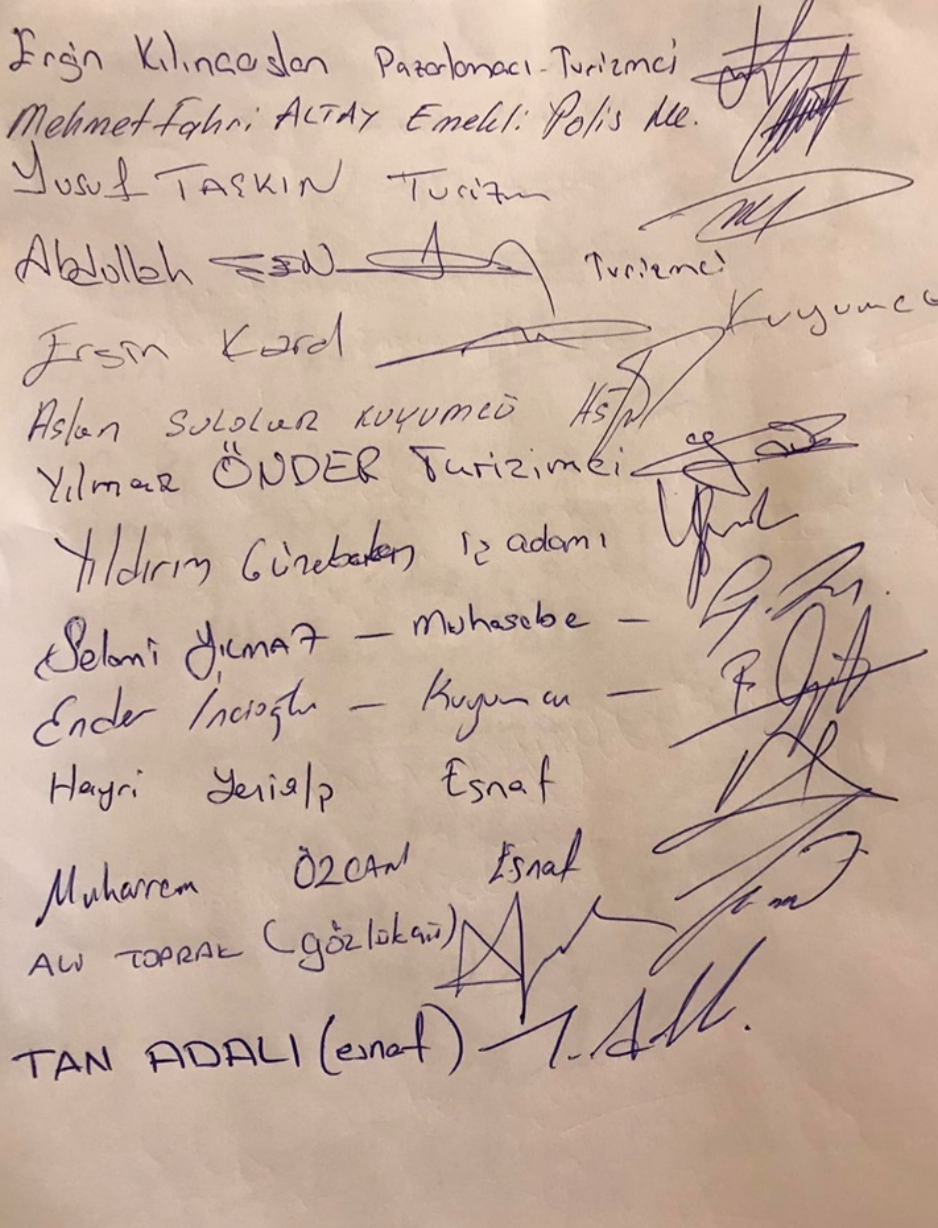 Ergin Kılıncaslan Pazarlamacı-Turizmci
Mehmet Fahri ALTAY Emekli Polis Me.
Yusuf TAŞKIN Turizm
Abdullah ESEN Turizmci
Ersin Karal Kuyumcu
Aslan SULULAR KUYUMCU
Yılmaz ÖNDER Turizimci
Yıldırım iş adamı
Selami YILMAZ — Muhasebe —
Ender İncioğlu — Kuyumcu —
Hayri Yenialp Esnaf
Muharrem ÖZCAN Esnaf
ALİ TOPRAK (gözlükçü)
TAN ADALI (esnaf)